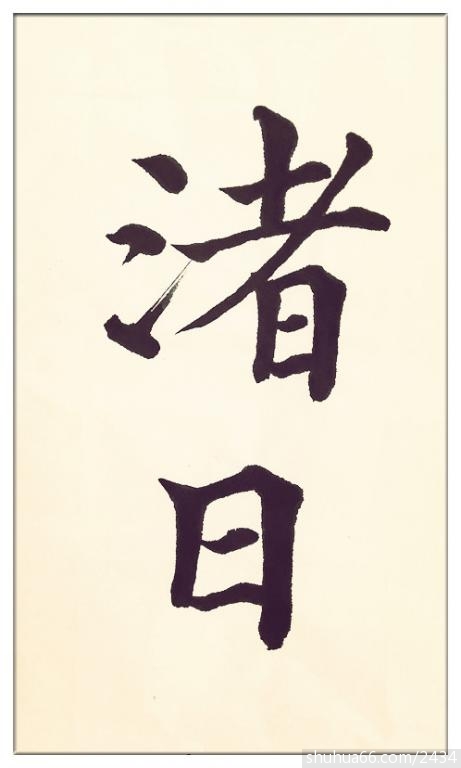 渚日
shuhua66.com/2434